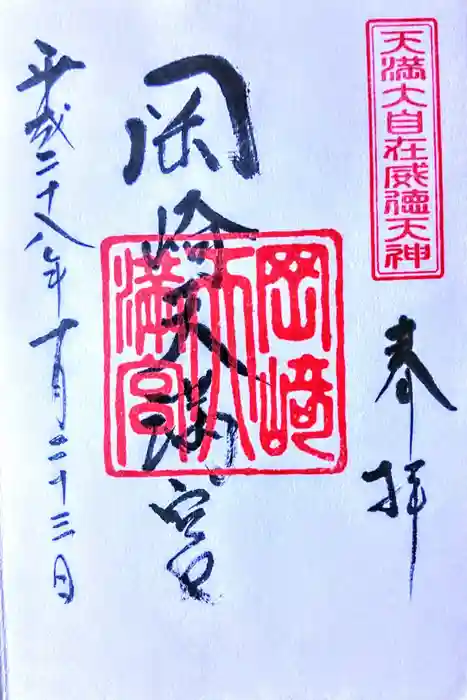 天満大自在威徳天神
奉拝
岡崎天満宮
岡﨑
天
満宮
平成二十八年十月二十三日